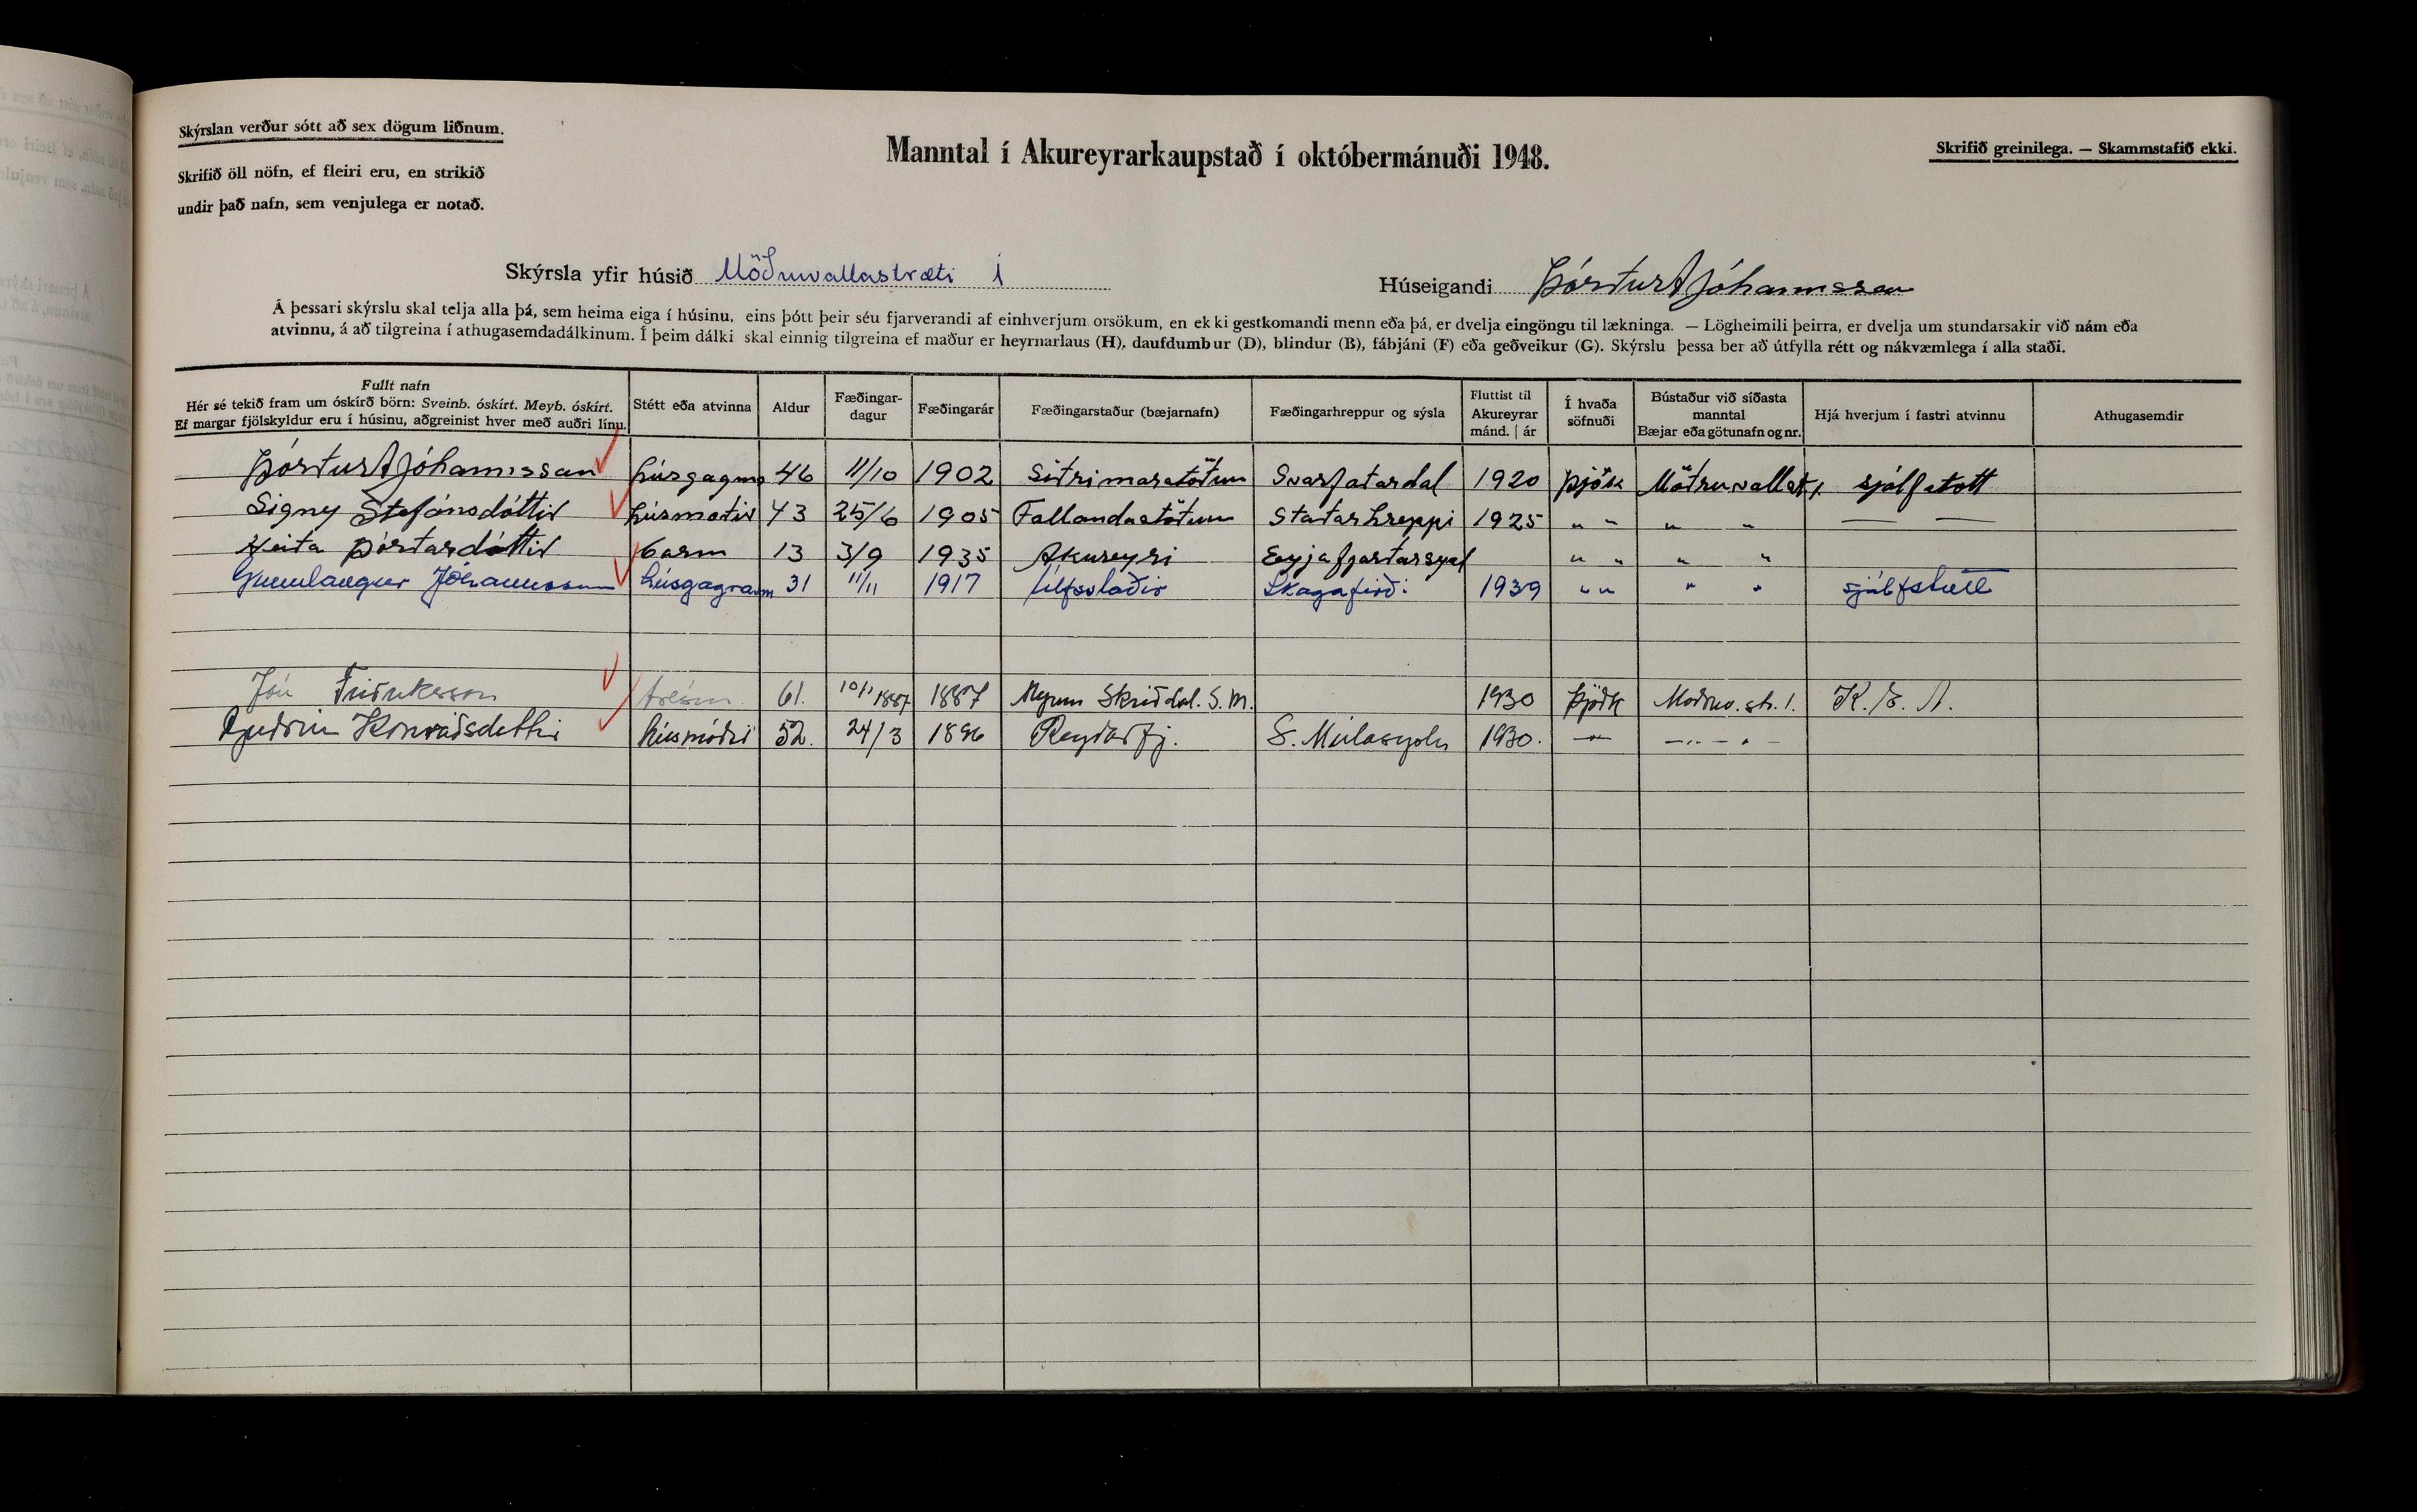 Skýrslan verður sótt að sex dögum liðnum.
Skrifið öll nöfn, ef fleiri eru, en strikið
undir það nafn, sem venjulega er notað.
Manntal í Akureyrarkaupstað í októbermánuði 1948.
Skrifið greinilega. — Skammstafið ekki.
Skýrsla yfir húsið Möðruvallastræti 1
Húseigandi Þórður A Jóhannsson
Á þessari skýrslu skal telja alla þá, sem heima eiga í húsinu, eins þótt þeir séu fjarverandi af einhverjum orsökum, en ekki gestkomandi menn eða þá, er dvelja eingöngu til lækninga. — Lögheimili þeirra, er dvelja um stundarsakir við nám eða
atvinnu, á að tilgreina í athugasemdadálkinum. Í þeim dálki skal einnig tilgreina ef maður er heyrnarlaus (H), daufdumbur (D), blindur (B), fábjáni (F) eða geðveikur (G). Skýrslu þessa ber að útfylla rétt og nákvæmlega í alla staði.
Fullt nafn
Hér sé tekið fram um óskírð börn: Sveinb. óskírt. Meyb. óskírt.
Ef margar fjölskyldur eru í húsinu, aðgreinist hver með auðri línu.
Stétt eða atvinna
Aldur
Fæðingar-
dagur
Fæðingarár
Fæðingarstaður (bæjarnafn)
Fæðingarhreppur og sýsla
Fluttist til
Akureyrar
mánd. | ár
Í hvaða
söfnuði
Bústaður við síðasta
manntal
Bæjar eða götunafn og nr.
Hjá hverjum í fastri atvinnu
Athugasemdir
Þórður A Jóhannsson húsgagnas 46 11/10 1902 Sitrimarastöðum Svarfaðardal 1920 Þjóðk Möðruvallast 1. sjálfstætt
Signy Stefánsdóttir húsmóðir 43 25/6 1905 Fallandastöðum Staðarhreppi 1925 " " " " — —
Heiða Þórðardóttir barn 13 3/9 1935 Akureyri Eyjafjarðarsysl " " " "
Gunnlaugur Jóhannsson húsgagnasm 31 11/11 1917 Úlfsstaðir Skagafirði 1939 " " " " sjálfstætt
Jón Friðriksson 61. 10/1 1887 1887 Myrum Skriðdal. S. M. 1930 Þjóðk Moðruv. str. 1. K. E. A.
Guðrún Konráðsdottir húsmóðir 52. 24/3 1896 Reyðarfj. S. Múlasyslu 1930. —"— —"—"—